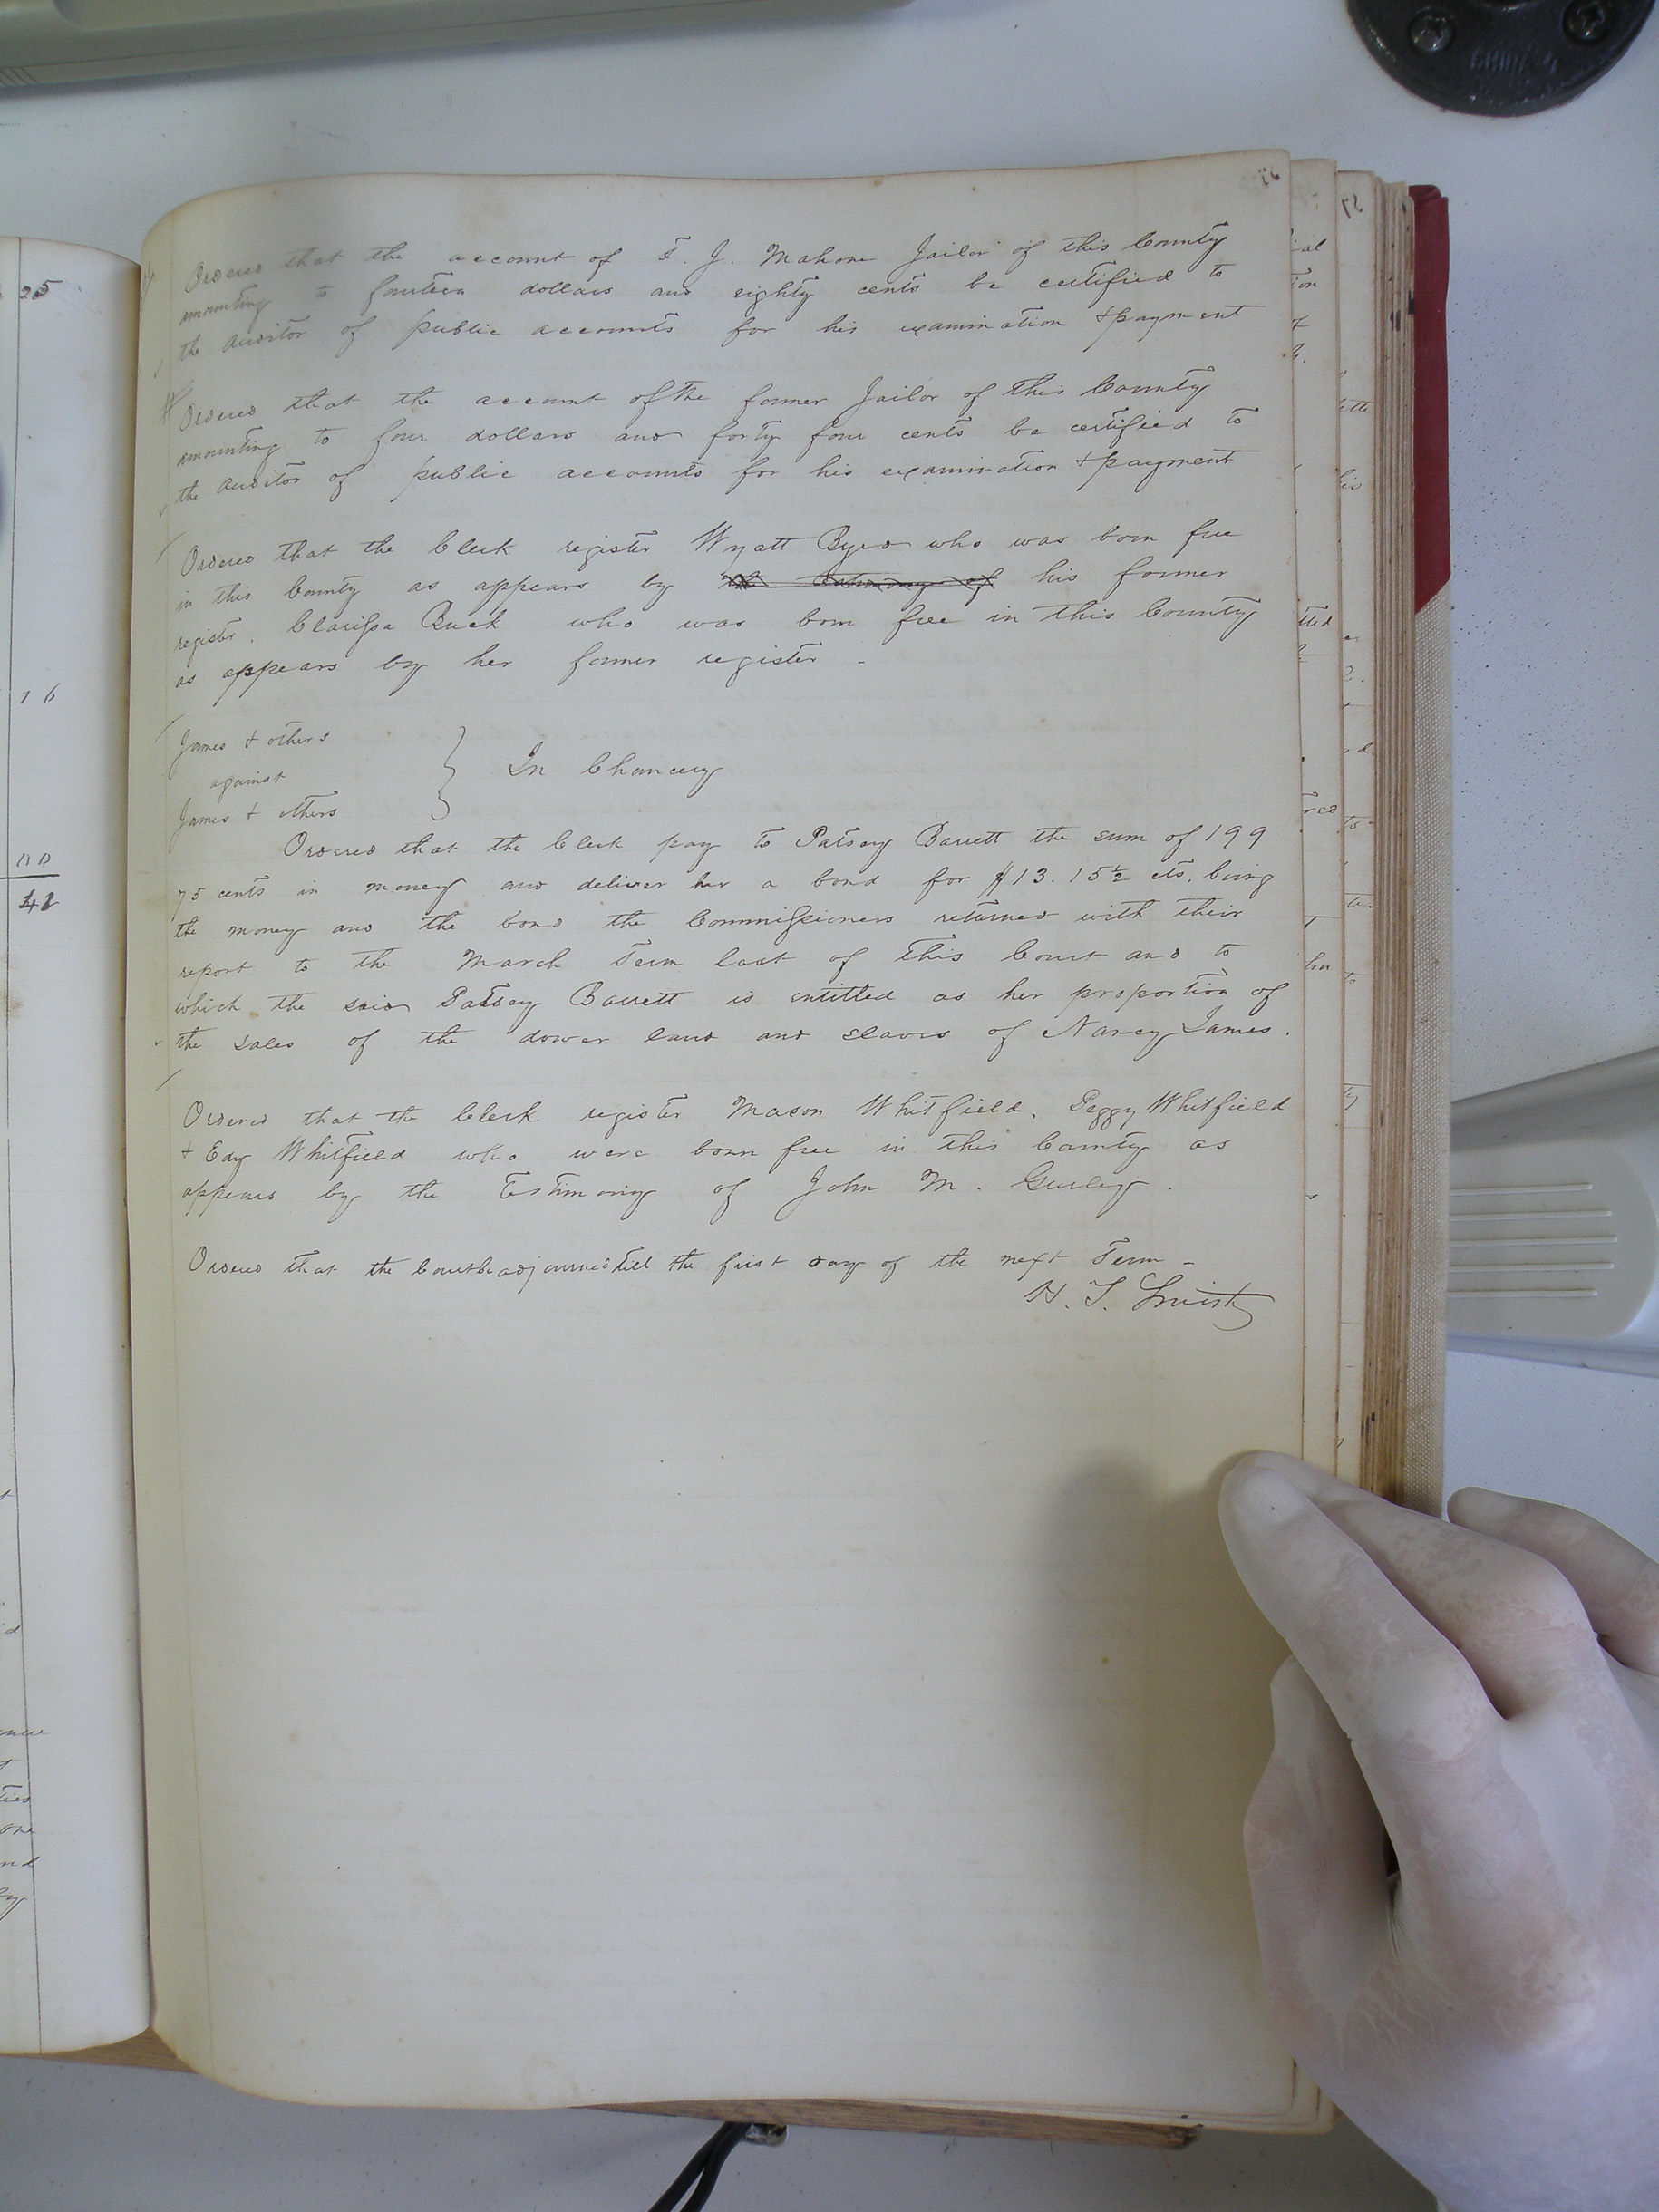 Ordered that the account of T. J. Mahone Jailor of this County
amounting to fourteen dollars and eighty cents be certified to
the Auditor of public accounts for his examination & payment
Ordered that the account of the former Jailor of this County
amounting to four dollars and forty four cents be certified to
the Auditor of public accounts for his examination & payment
Ordered that the Clerk register Wyatt Byrd who was born free
in this County as appears by the testimony of his former
register. Clarissa Buck who was born free in this County
as appears by her former register -
James & others
against
In Chancery
James & others
Ordered that the Clerk pay to Patsey Barrett the sum of 199
75 cents in money and deliver her a bond for $13.15½ cts. being
the money and the bond the Commissioners returned with their
report to the March Term last of this Court and to
which the said Patsey Barrett is entitled as her proportion of
the sales of the dower land and slaves of Nancy James.
Ordered that the Clerk register Mason Whitfield, Peggy Whitfield
& Edy Whitfield who were born free in this County as
appears by the testimony of John M. Gurley.
Ordered that the Court be adjourned till the first day of the next Term -